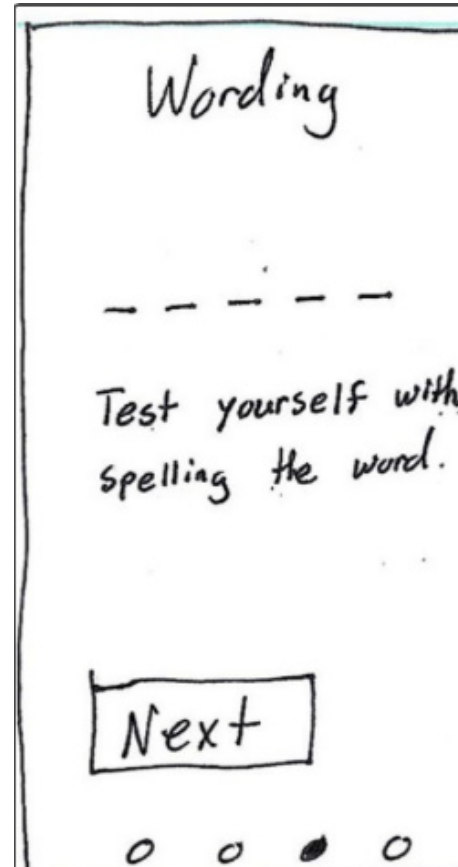 Wording
_ _ _ _ _
Test yourself with
spelling the word.
Next